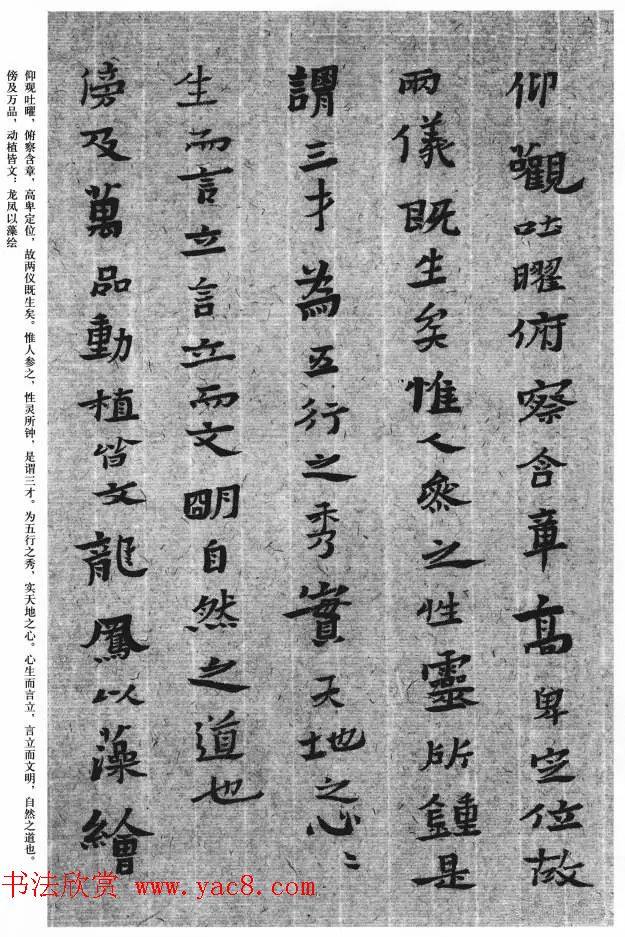 仰觀吐曜俯察含章高卑定位故
兩儀既生矣惟人參之性靈所鍾是
謂三才為五行之秀實天地之心〻
生而言立言立而文朙自然之道也
傍及萬品動植皆文龍鳳以藻繪
仰观吐曜，俯察含章，高卑定位，故两仪既生矣。惟人参之，性灵所钟，是谓三才。为五行之秀，实天地之心。心生而言立，言立而文明，自然之道也。
傍及万品，动植皆文：龙凤以藻绘
书法欣赏 www.yac8.com